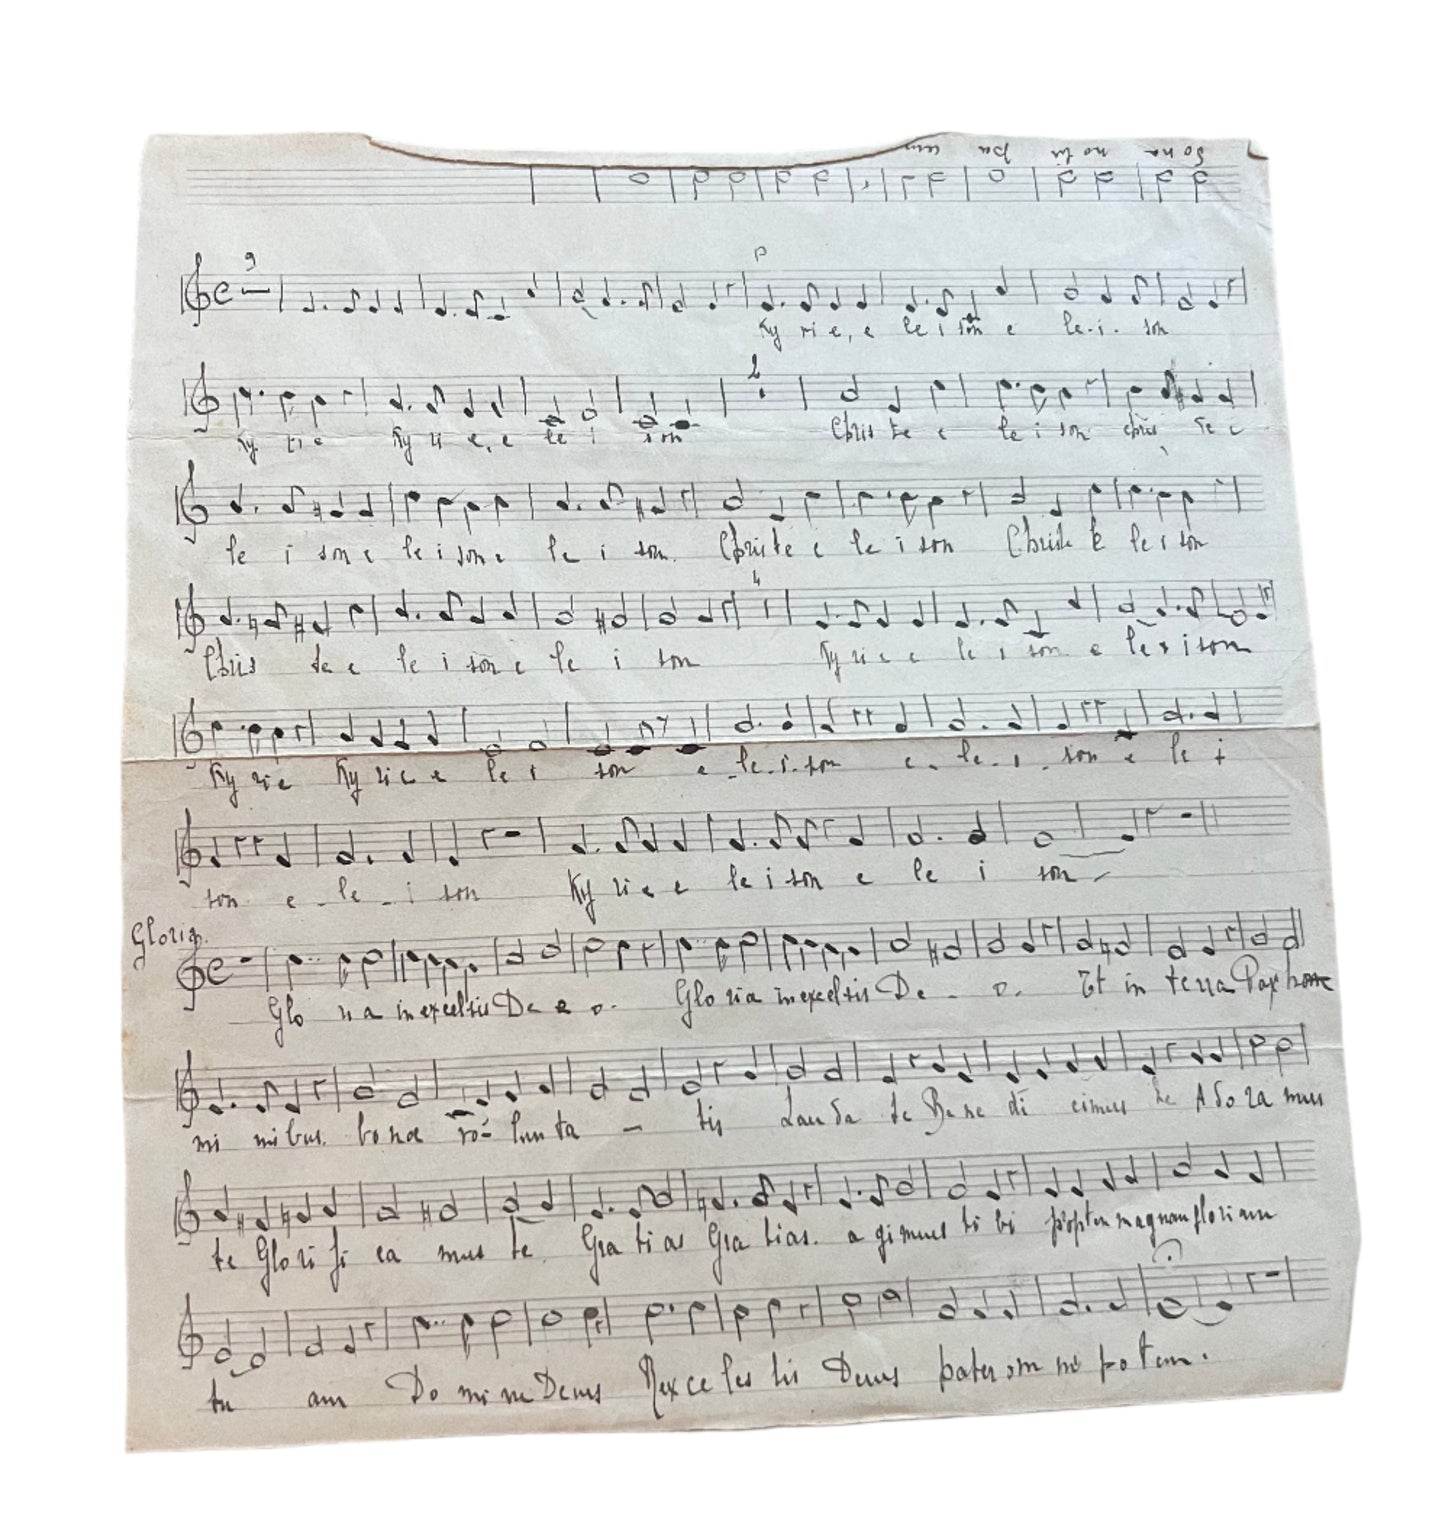 Dona nobis pa cem
9
P
Ky ri e, e le i son e le. i. son
2
Ky ri e Ky ri e, e le i son Chris te e le i son chris te e
le i son e le i son e le i son. Christe e le i son Christe e le i son
4
Chris te e le i son e le i son Ky ri e e le i son e le i son
Ky ri e Ky ri e e le i son e - le. i. son e - le - i - son e le i
son e - le - i son Ky ri e e le i son e le i son -
Gloria.
Glo ri a in excelsis De e o. Glo ria in excelsis De - o. Et in terra Pax hom
mi nibus. bonae vo- lun ta - tis Lau da te Be ne di cimus te A do ra mus
te Glo ri fi ca mus te. Gra ti as Gra tias. a gimus ti bi propter magnam gloriam
tu am Do mi ne Deus Rex ce les tis Deus pater om ni po tem.